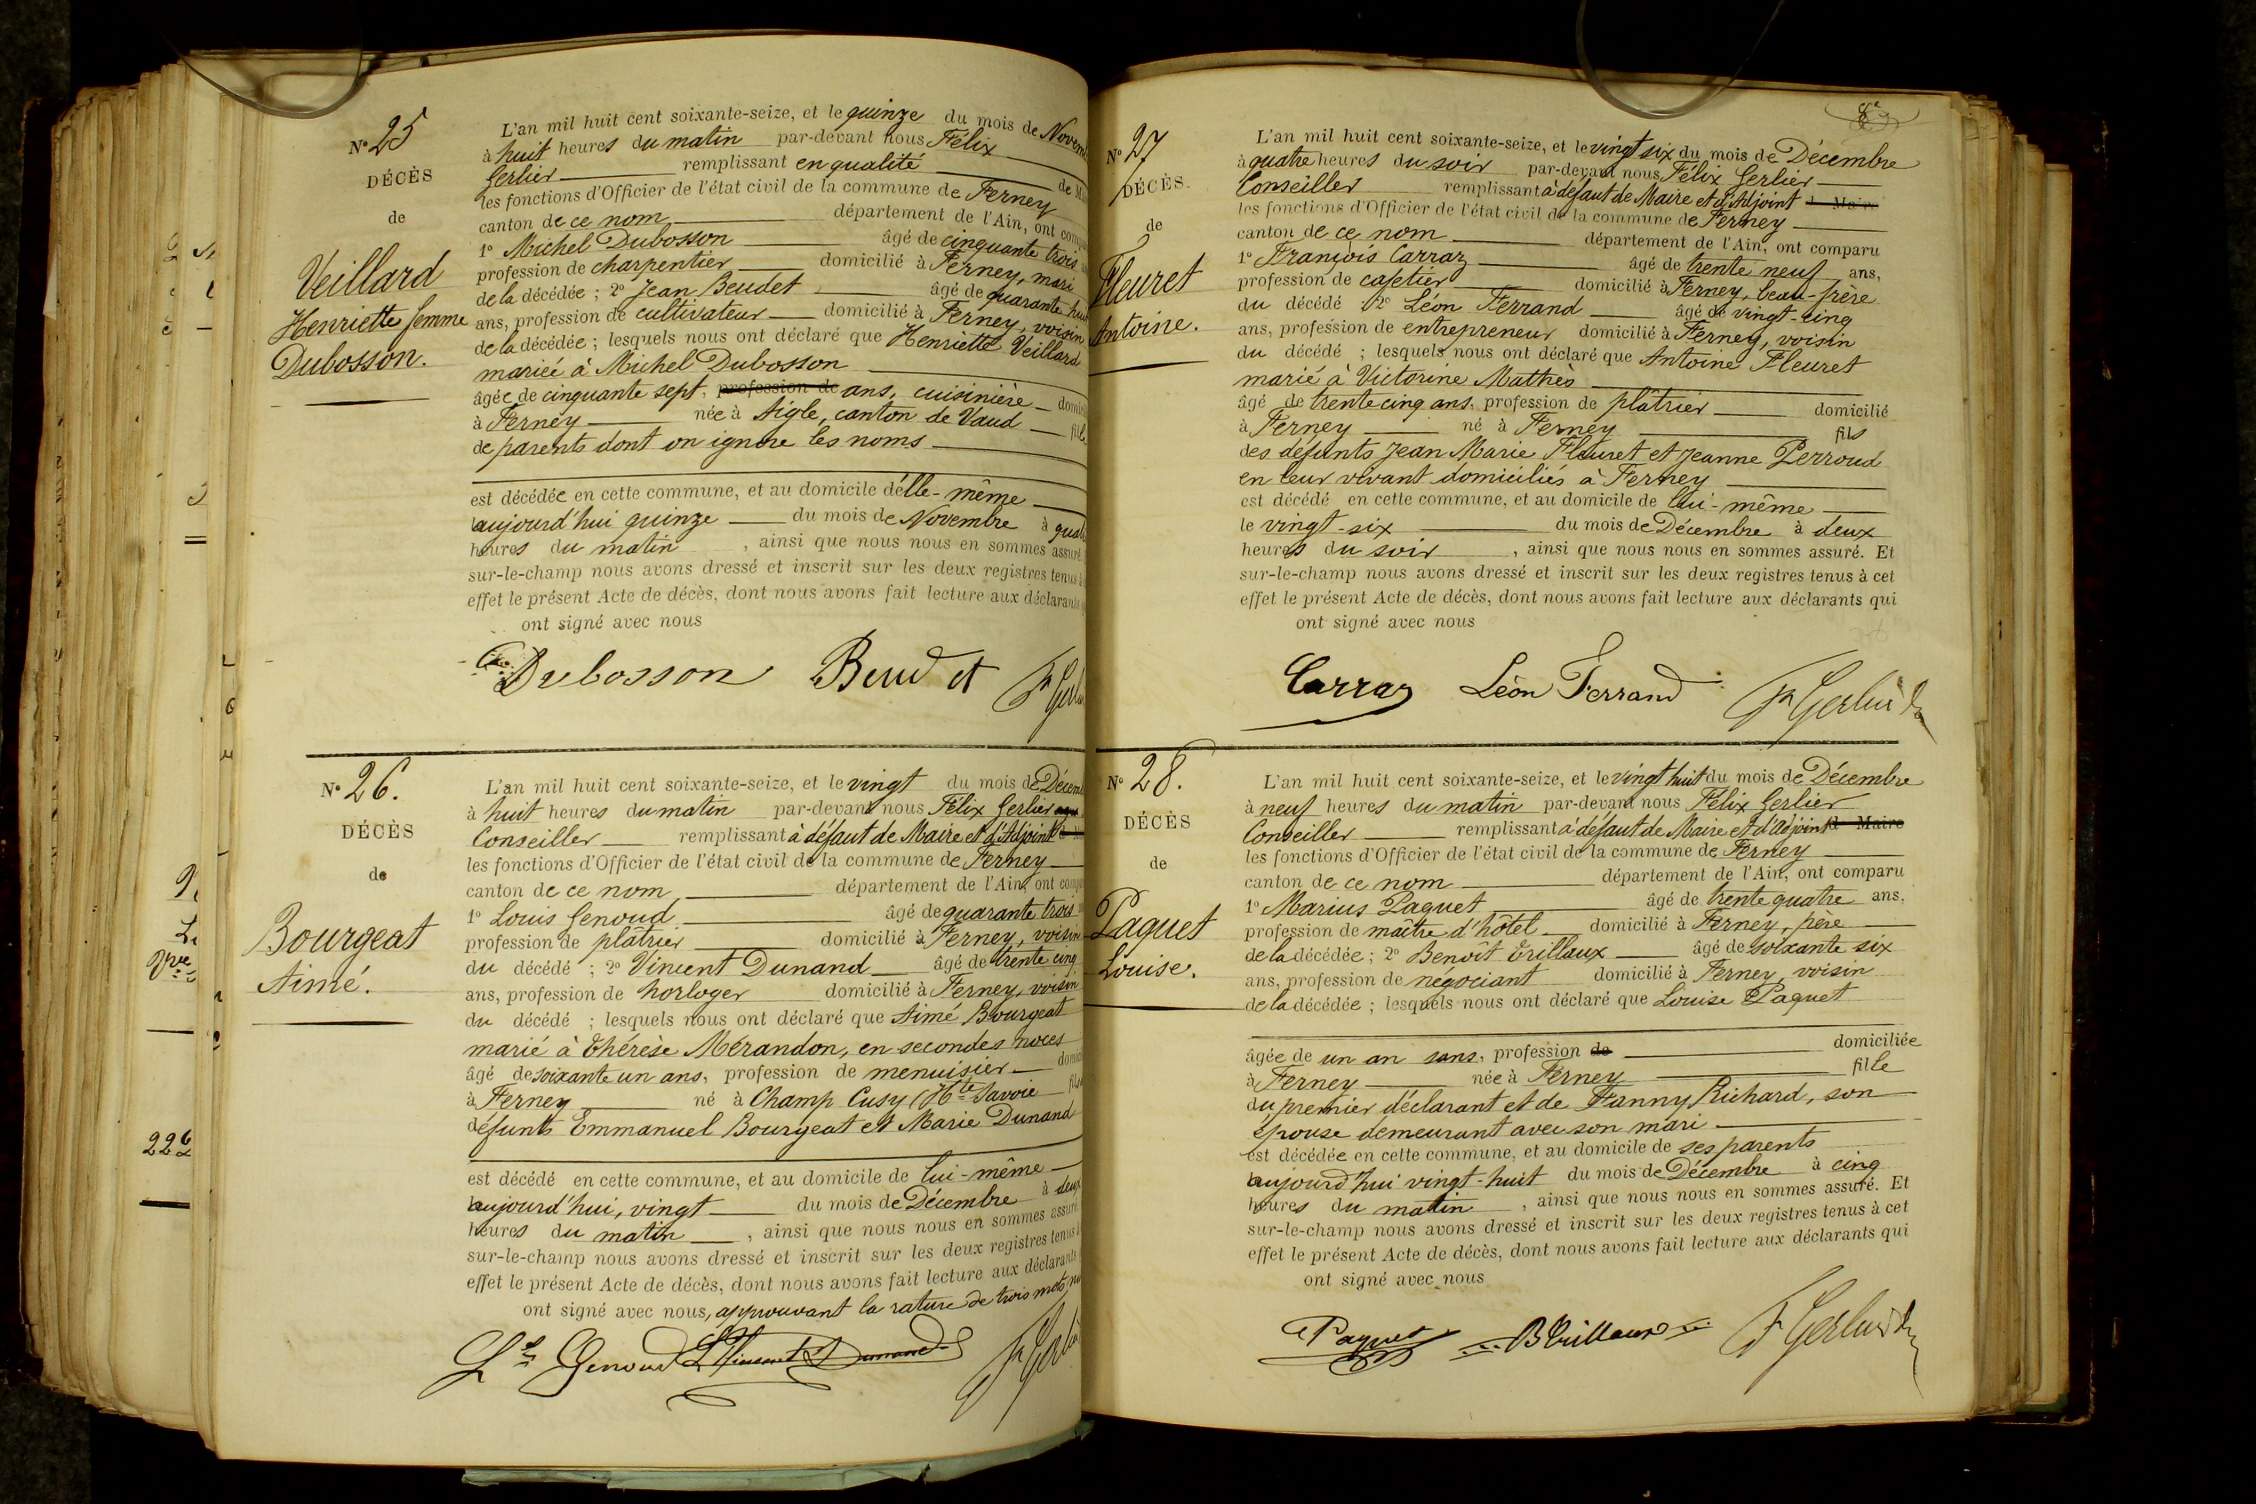 N° 25
DÉCÈS
de
Veillard
Henriette femme
Dubosson.
L'an mil huit cent soixante-seize, et le quinze du mois de Novem
à huit heures du matin par-devant nous Félix
Gerlier remplissant en qualité de M
les fonctions d'Officier de l'état civil de la commune de Ferney
canton de ce nom département de l'Ain, ont comp
1° Michel Dubosson âgé de cinquante trois
profession de charpentier domicilié à Ferney, mari
de la décédée ; 2° Jean Beudet âgé de quarante hui
ans, profession de cultivateur domicilié à Ferney, voisin
de la décédée ; lesquels nous ont déclaré que Henriette Veillard
mariée à Michel Dubosson
âgée de cinquante sept, profession de ans, cuisinière domic
à Ferney née à Aigle, canton de Vaud fille
de parents dont on ignore les noms
est décédée en cette commune, et au domicile d'elle-même
aujourd'hui quinze du mois de Novembre à quatr
heures du matin , ainsi que nous nous en sommes assuré
sur-le-champ nous avons dressé et inscrit sur les deux registres tenus à
effet le présent Acte de décès, dont nous avons fait lecture aux déclarants
ont signé avec nous
Dubosson Beudet Fx Gerl
N° 26.
DÉCÈS
de
Bourgeat
Aimé.
L'an mil huit cent soixante-seize, et le vingt du mois de Décem
à huit heures du matin par-devant nous Félix Gerlier
Conseiller remplissant à défaut de Maire et d'Adjoint
les fonctions d'Officier de l'état civil de la commune de Ferney
canton de ce nom département de l'Ain, ont comp
1° Louis Genoud âgé de quarante trois
profession de plâtrier domicilié à Ferney, voisin
du décédé ; 2° Vincent Dunand âgé de trente cinq
ans, profession de horloger domicilié à Ferney, voisin
du décédé ; lesquels nous ont déclaré que Aimé Bourgeat
marié à Thérèse Mérandon, en secondes noces
âgé de soixante un ans, profession de menuisier domici
à Ferney né à Champ Cusy (Hte Savoie fils
défunts Emmanuel Bourgeat et Marie Dunand
est décédé en cette commune, et au domicile de lui-même
aujourd'hui, vingt du mois de Décembre à deux
heures du matin , ainsi que nous nous en sommes assuré
sur-le-champ nous avons dressé et inscrit sur les deux registres tenus à
effet le présent Acte de décès, dont nous avons fait lecture aux déclarants
ont signé avec nous, approuvant la rature de trois mots nu
Ls Genoud Vincent Dunand Fx Gerli
8e
N° 27
DÉCÈS.
de
Fleuret
Antoine.
L'an mil huit cent soixante-seize, et le vingt six du mois de Décembre
à quatre heures du soir par-devant nous Félix Gerlier
Conseiller remplissant à défaut de Maire et d'Adjoint d Maire
les fonctions d'Officier de l'état civil de la commune de Ferney
canton de ce nom département de l'Ain, ont comparu
1° François Carraz âgé de trente neuf ans,
profession de cafetier domicilié à Ferney, beau-frère
du décédé 2° Léon Ferrand âgé de vingt-cinq
ans, profession de entrepreneur domicilié à Ferney, voisin
du décédé ; lesquels nous ont déclaré que Antoine Fleuret
marié à Victorine Mathès
âgé de trente cinq ans, profession de plâtrier domicilié
à Ferney né à Ferney fils
des défunts Jean Marie Fleuret et Jeanne Perroud
en leur vivant domiciliés à Ferney
est décédé en cette commune, et au domicile de lui-même
le vingt-six du mois de Décembre à deux
heures du soir , ainsi que nous nous en sommes assuré. Et
sur-le-champ nous avons dressé et inscrit sur les deux registres tenus à cet
effet le présent Acte de décès, dont nous avons fait lecture aux déclarants qui
ont signé avec nous
Carraz Léon Ferrand Fx Gerlier
N° 28.
DÉCÈS
de
Paquet
Louise.
L'an mil huit cent soixante-seize, et le vingt huit du mois de Décembre
à neuf heures du matin par-devant nous Félix Gerlier
Conseiller remplissant à défaut de Maire et d'adjoint d Maire
les fonctions d'Officier de l'état civil de la commune de Ferney
canton de ce nom département de l'Ain, ont comparu
1° Marius Paquet âgé de trente quatre ans,
profession de maître d'hôtel domicilié à Ferney, père
de la décédée ; 2° Benoît Trillaux âgé de soixante six
ans, profession de négociant domicilié à Ferney, voisin
de la décédée ; lesquels nous ont déclaré que Louise Paquet
âgée de un an sans, profession de domiciliée
à Ferney née à Ferney fille
du premier déclarant et de Fanny Richard, son
épouse demeurant avec son mari
est décédée en cette commune, et au domicile de ses parents
aujourd'hui vingt-huit du mois de Décembre à cinq
heures du matin , ainsi que nous nous en sommes assuré. Et
sur-le-champ nous avons dressé et inscrit sur les deux registres tenus à cet
effet le présent Acte de décès, dont nous avons fait lecture aux déclarants qui
ont signé avec nous
Paquet B Trillaux Fx Gerlier